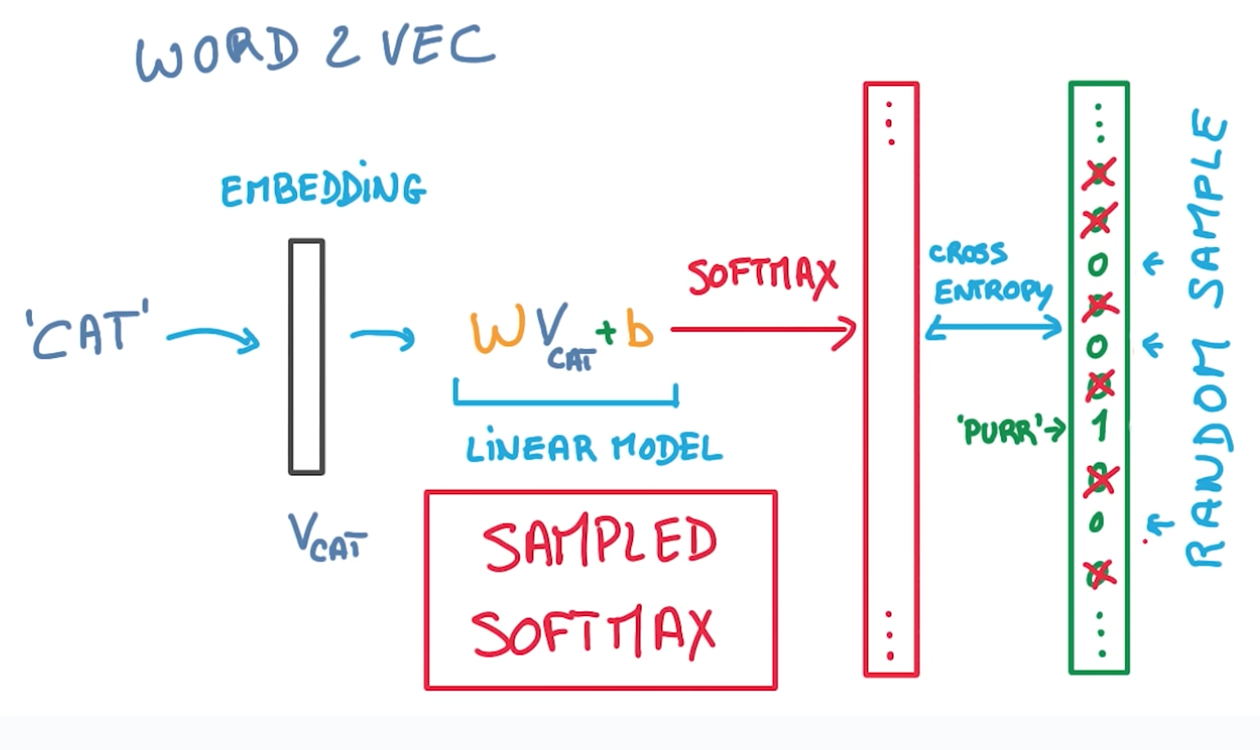 WORD 2 VEC
EMBEDDING
'CAT'
V CAT
W V CAT + b
LINEAR MODEL
SAMPLED
SOFTMAX
SOFTMAX
CROSS
ENTROPY
'PURR'
0
0
1
0
RANDOM SAMPLE